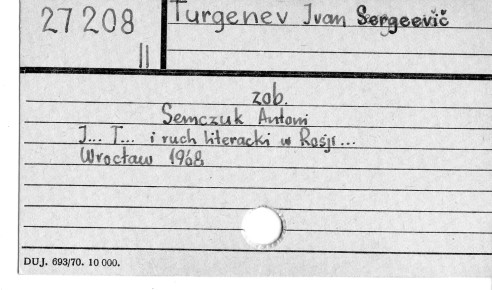 27208 Turgenev Ivan Sergeevič
II
zob.
Semczuk Antoni
I... T... i ruch literacki w Rosji...
Wrocław 1968
DUJ. 693/70. 10 000.